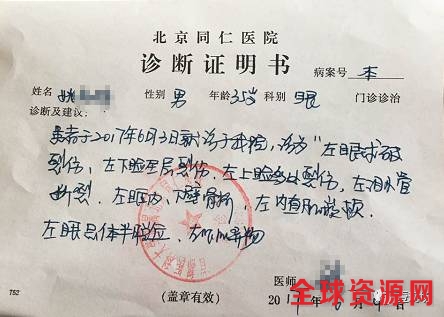 北京同仁医院
诊断证明书
病案号 本
姓名 姚 性别 男 年龄 35岁 科别 眼 门诊诊治
诊断及建议:
患者于2017年6月3日就诊于我院,诊为"左眼球破
裂伤,左下睑全层裂伤,左上睑皮肤裂伤,左泪小管
断裂,左眶内、下壁骨折,左内直肌
左眼晶体半脱位,左眼异物
医师
(盖章有效)
201 年 6 月 日
T52
全球资源网